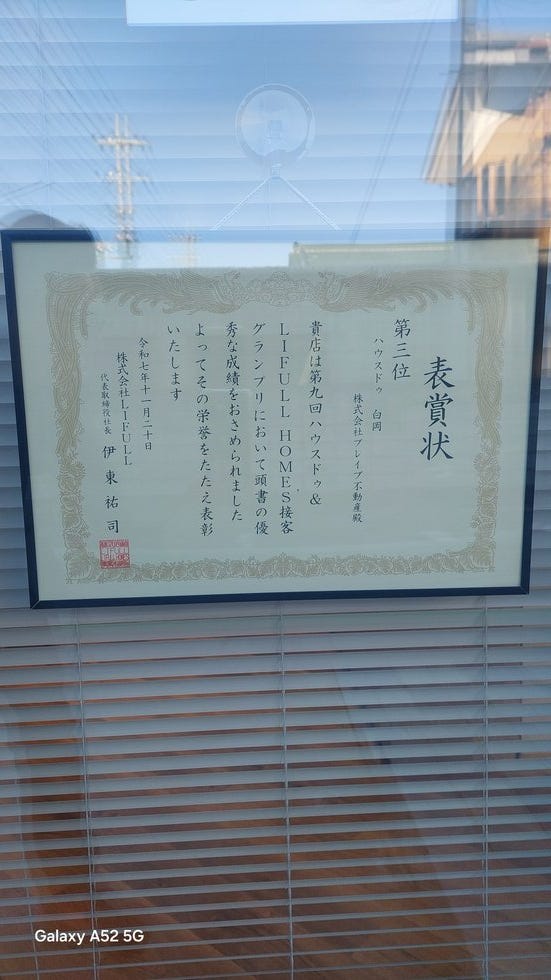 表賞状
第三位
ハウスドゥ 白岡
株式会社ブレイブ不動産殿
貴店は第九回ハウスドゥ&
LIFULL HOMES接客
グランプリにおいて頭書の優
秀な成績をおさめられました
よってその栄誉をたたえ表彰
いたします
令和七年十一月二十日
株式会社LIFULL
代表取締役社長 伊東祐司
Galaxy A52 5G